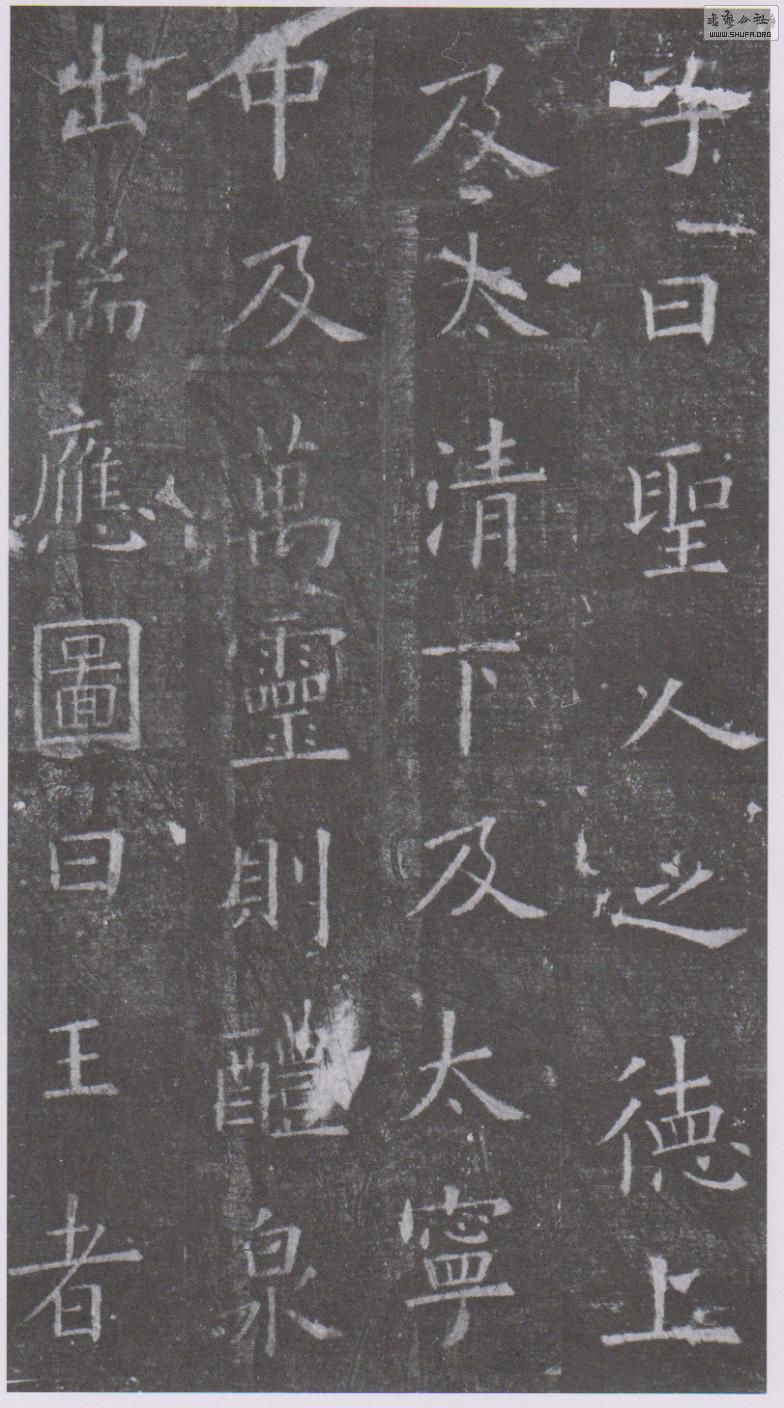 子曰聖人之德上
及太清下及太寧
中及萬靈則醴泉
出瑞應圖曰王者
書藝公社
WWW.SHUFA.ORG